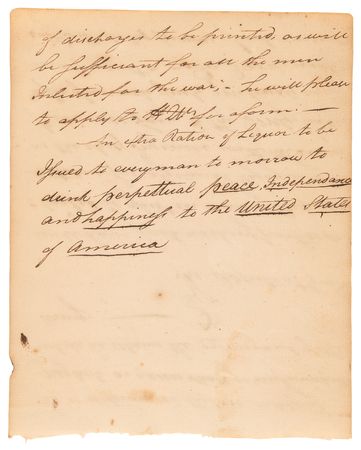 of discharges to be printed, as will
be sufficient for all the men
Inlisted for the war; - he will please
to apply to H Qrs for a form. -
An extra Ration of Liquor to be
Issued to every man to morrow to
drink perpettual peace, Independance
and happiness to the United States
of America